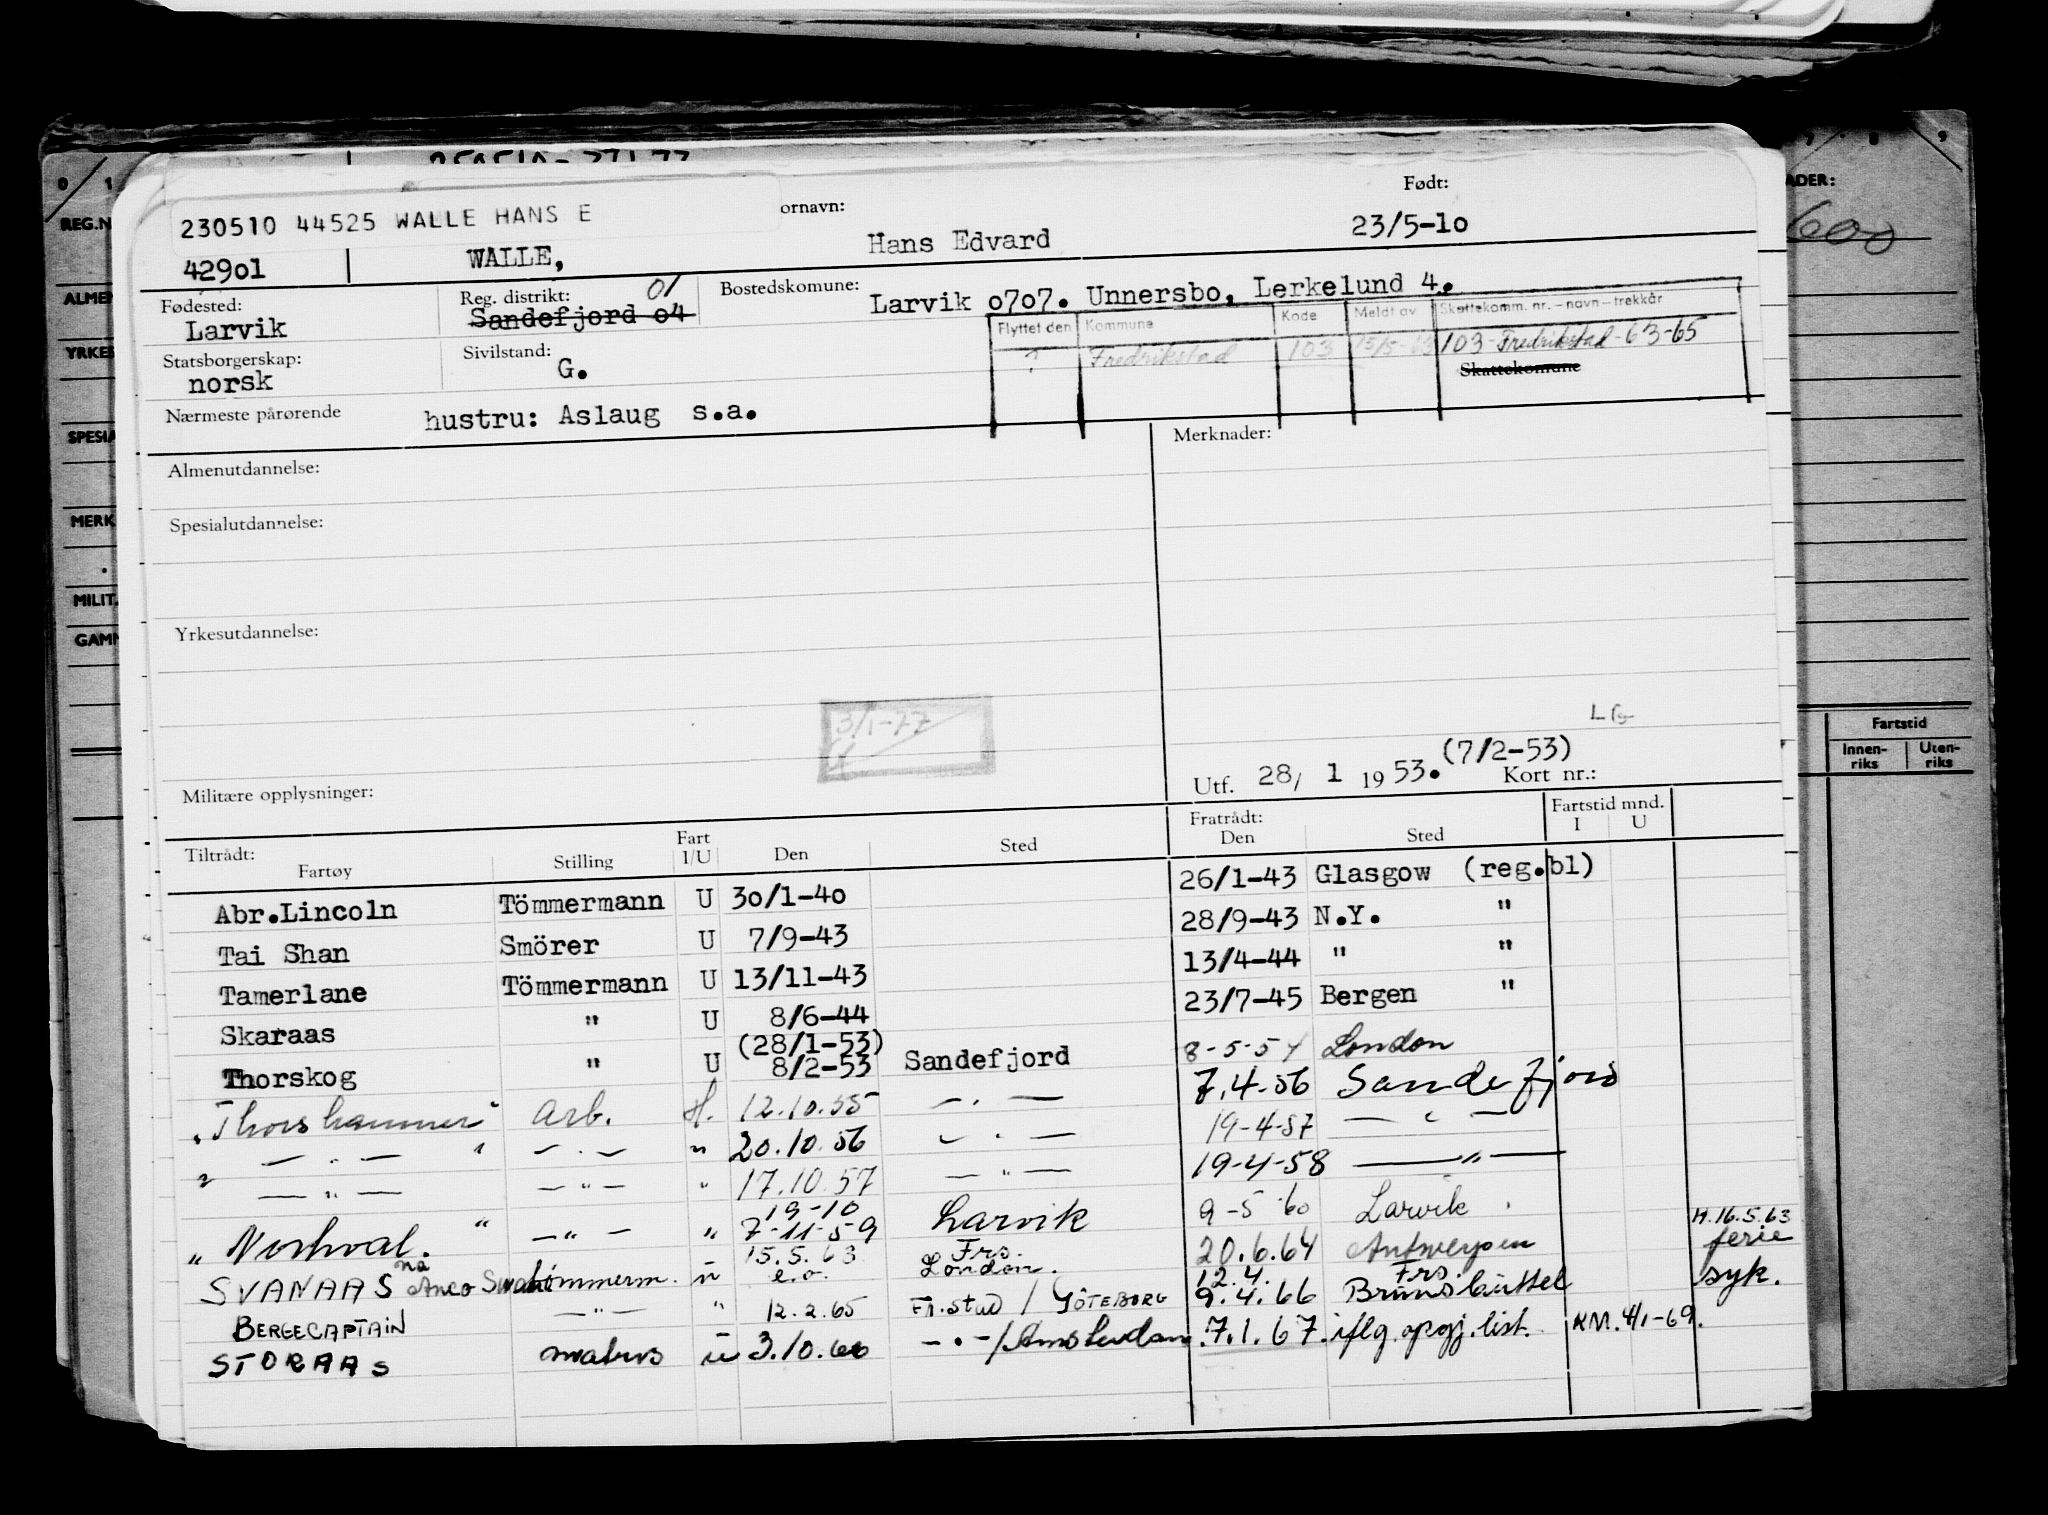 230510 44525 WALLE HANS E
ornavn:
Født:
42901
WALLE,
Hans Edvard
23/5-10
Fødested:
Larvik
Reg. distrikt: 01
Sandefjord 04
Bostedskomune:
Larvik 0707. Unnersbo, Lerkelund 4.
Flyttet den Kommune Kode Meldt av Skattekomm. nr. – navn – trekkår
? Fredrikstad 103 15/5-63 103-Fredrikstad-63-65
Skattekomune
Statsborgerskap:
norsk
Sivilstand:
G.
Nærmeste pårørende
hustru: Aslaug s.a.
Almenutdannelse:
Merknader:
Spesialutdannelse:
Yrkesutdannelse:
3/1-77
Militære opplysninger:
(7/2-53)
Utf. 28/ 1 1953. Kort nr.:
Tiltrådt:
Fartøy Stilling Fart I/U Den Sted Fratrådt: Den Sted Fartstid mnd. I U
Abr.Lincoln Tömmermann U 30/1-40 26/1-43 Glasgow (reg.bl)
Tai Shan Smörer U 7/9-43 28/9-43 N.Y. "
Tamerlane Tömmermann U 13/11-43 13/4-44 " "
Skaraas " U 8/6-44 23/7-45 Bergen "
(28/1-53)
Thorskog " U 8/2-53 Sandefjord 8-5-54 London
"Thorshammer" Arb. H. 12.10.55 — . — 7.4-56 Sandefjord
" — . — " — . — " 20.10.56 — . — 19-4-57 — " —
— " — — " — " 17.10.57 — " — 19-4-58 — " —
19-10
" Norhval. " — " — " 7-11-59 Larvik 9-5-60 Larvik
H.16.5.63
15.5.63 Frs.
SVANAAS nå Anco Swan tömmerm. ü e.o. London. 20.6.64 Antwerpen ferie
12.4. Frs.
BERGECAPTAIN — " — " 12.2.65 Fr.stad / GÖTEBORG 9.4.66 Brunsbüttel syk.
STORAAS matros ü 3.10.66 — " — / Amsterdam 7.1.67. iflg. opgj. list. KM. 4/1-69.
REG.N
ALMEN
YRKES
SPESIA
MERK
MILIT.
GAMM
ADER:
600
Fartstid
Innen-riks Uten-riks